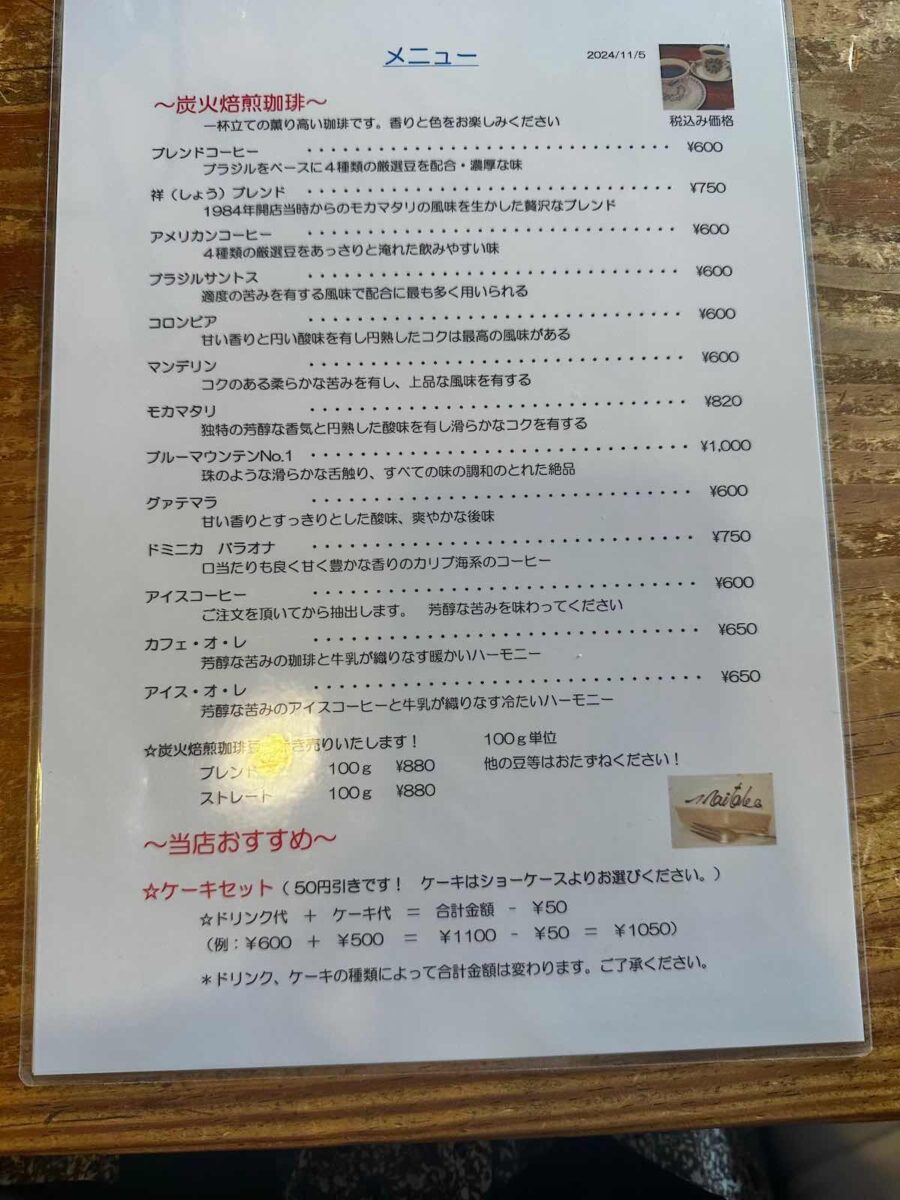 メニュー
2024/11/5
税込み価格
～炭火焙煎珈琲～
一杯立ての薫り高い珈琲です。香りと色をお楽しみください
ブレンドコーヒー ・・・・・・・・・・・・・・・・・・・・・・・・・・・・・・ ¥600
ブラジルをベースに4種類の厳選豆を配合・濃厚な味
祥（しょう）ブレンド ・・・・・・・・・・・・・・・・・・・・・・・・・・・・・・ ¥750
1984年開店当時からのモカマタリの風味を生かした贅沢なブレンド
アメリカンコーヒー ・・・・・・・・・・・・・・・・・・・・・・・・・・・・・・ ¥600
4種類の厳選豆をあっさりと淹れた飲みやすい味
ブラジルサントス ・・・・・・・・・・・・・・・・・・・・・・・・・・・・・・ ¥600
適度の苦みを有する風味で配合に最も多く用いられる
コロンビア ・・・・・・・・・・・・・・・・・・・・・・・・・・・・・・ ¥600
甘い香りと円い酸味を有し円熟したコクは最高の風味がある
マンデリン ・・・・・・・・・・・・・・・・・・・・・・・・・・・・・・ ¥600
コクのある柔らかな苦みを有し、上品な風味を有する
モカマタリ ・・・・・・・・・・・・・・・・・・・・・・・・・・・・・・ ¥820
独特の芳醇な香気と円熟した酸味を有し滑らかなコクを有する
ブルーマウンテンNo.1 ・・・・・・・・・・・・・・・・・・・・・・・・・・・・・・ ¥1,000
珠のような滑らかな舌触り、すべての味の調和のとれた絶品
グァテマラ ・・・・・・・・・・・・・・・・・・・・・・・・・・・・・・ ¥600
甘い香りとすっきりとした酸味、爽やかな後味
ドミニカ　バラオナ ・・・・・・・・・・・・・・・・・・・・・・・・・・・・・・ ¥750
口当たりも良く甘く豊かな香りのカリブ海系のコーヒー
アイスコーヒー ・・・・・・・・・・・・・・・・・・・・・・・・・・・・・・ ¥600
ご注文を頂いてから抽出します。　芳醇な苦みを味わってください
カフェ・オ・レ ・・・・・・・・・・・・・・・・・・・・・・・・・・・・・・ ¥650
芳醇な苦みの珈琲と牛乳が織りなす暖かいハーモニー
アイス・オ・レ ・・・・・・・・・・・・・・・・・・・・・・・・・・・・・・ ¥650
芳醇な苦みのアイスコーヒーと牛乳が織りなす冷たいハーモニー
☆炭火焙煎珈琲豆 き売りいたします！　100g単位
ブレンド　100g　¥880　他の豆等はおたずねください！
ストレート　100g　¥880
～当店おすすめ～
☆ケーキセット（50円引きです！　ケーキはショーケースよりお選びください。）
☆ドリンク代　＋　ケーキ代　＝　合計金額　-　¥50
（例：¥600　＋　¥500　＝　¥1100　-　¥50　＝　¥1050）
＊ドリンク、ケーキの種類によって合計金額は変わります。ご了承ください。